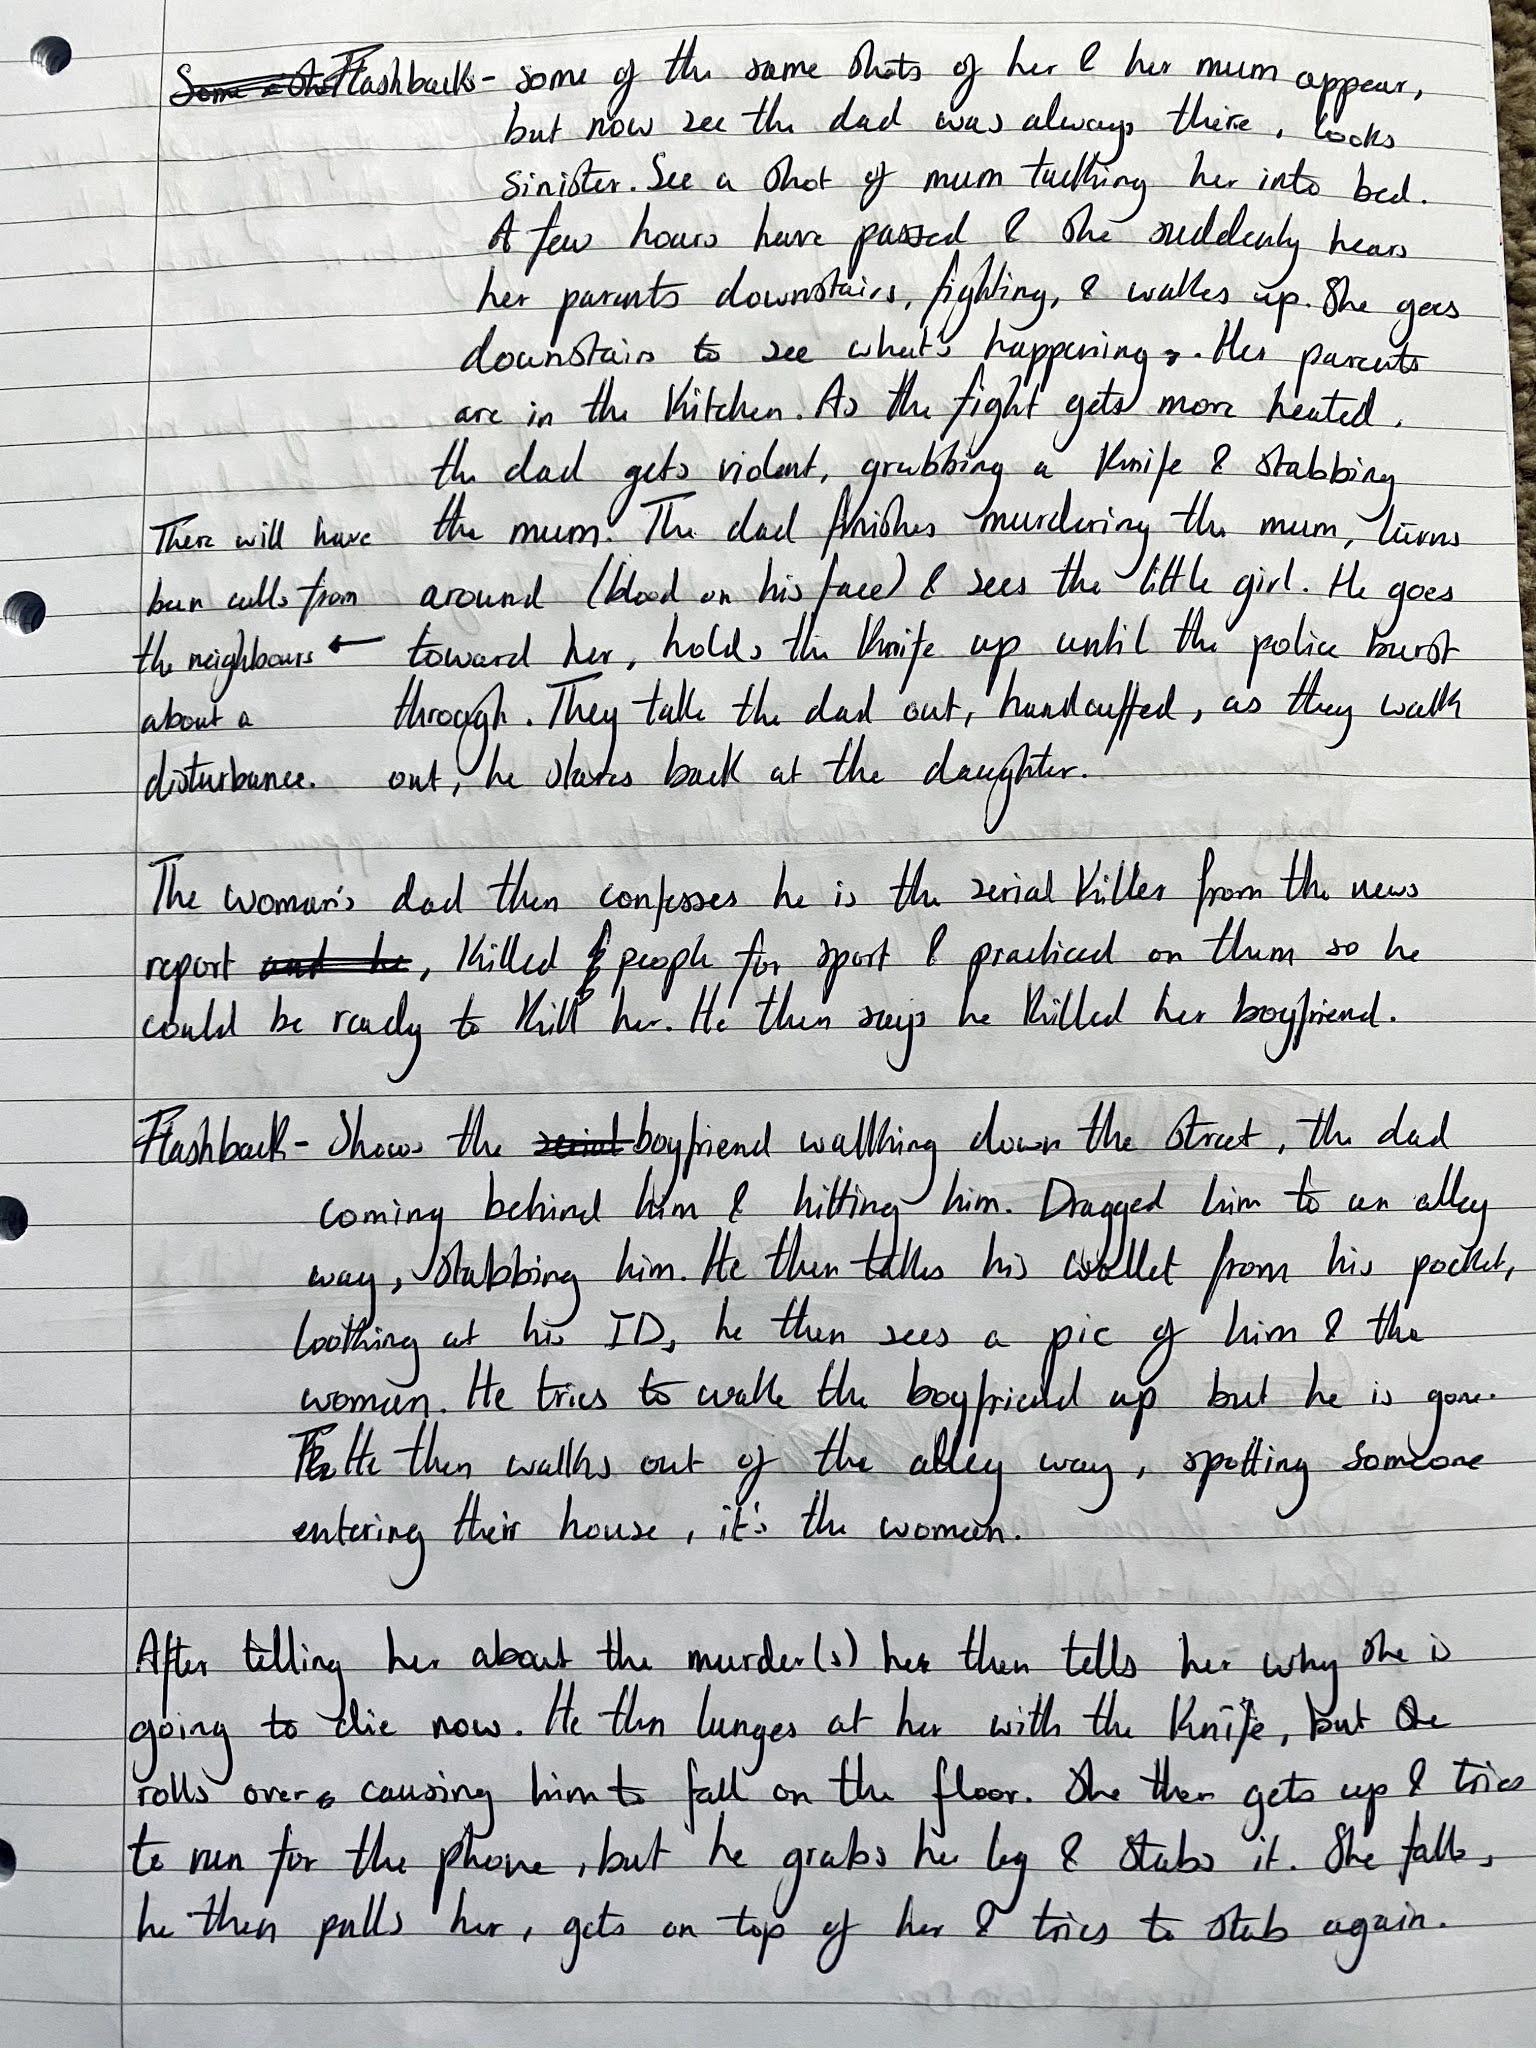 Flashback - some of the same shots of her & her mum appear,
but now see the dad was always there, looks
sinister. See a shot of mum tucking her into bed.
A few hours have passed & she suddenly hears
her parents downstairs, fighting, & wakes up. She goes
downstairs to see what's happening. Her parents
are in the kitchen. As the fight gets more heated,
the dad gets violent, grabbing a knife & stabbing
the mum. The dad finishes murdering the mum, turns
around (blood on his face) & sees the little girl. He goes
toward her, holds the knife up until the police burst
through. They take the dad out, handcuffed, as they walk
out, he stares back at the daughter.
There will have
been calls from
the neighbours ←
about a
disturbance.
The woman's dad then confesses he is the serial killer from the news
report and he, killed people for sport & practiced on them so he
could be ready to kill her. He then says he killed her boyfriend.
Flashback - Shows the serial boyfriend walking down the street, the dad
coming behind him & hitting him. Dragged him to an alley
way, stabbing him. He then takes his wallet from his pocket,
looking at his ID, he then sees a pic of him & the
woman. He tries to wake the boyfriend up but he is gone.
He then walks out of the alley way, spotting someone
entering their house, it's the woman.
After telling her about the murder(s) he then tells her why she is
going to die now. He then lunges at her with the knife, but she
rolls over, causing him to fall on the floor. She then gets up & tries
to run for the phone, but he grabs her leg & stabs it. She falls,
he then pulls her, gets on top of her & tries to stab again.